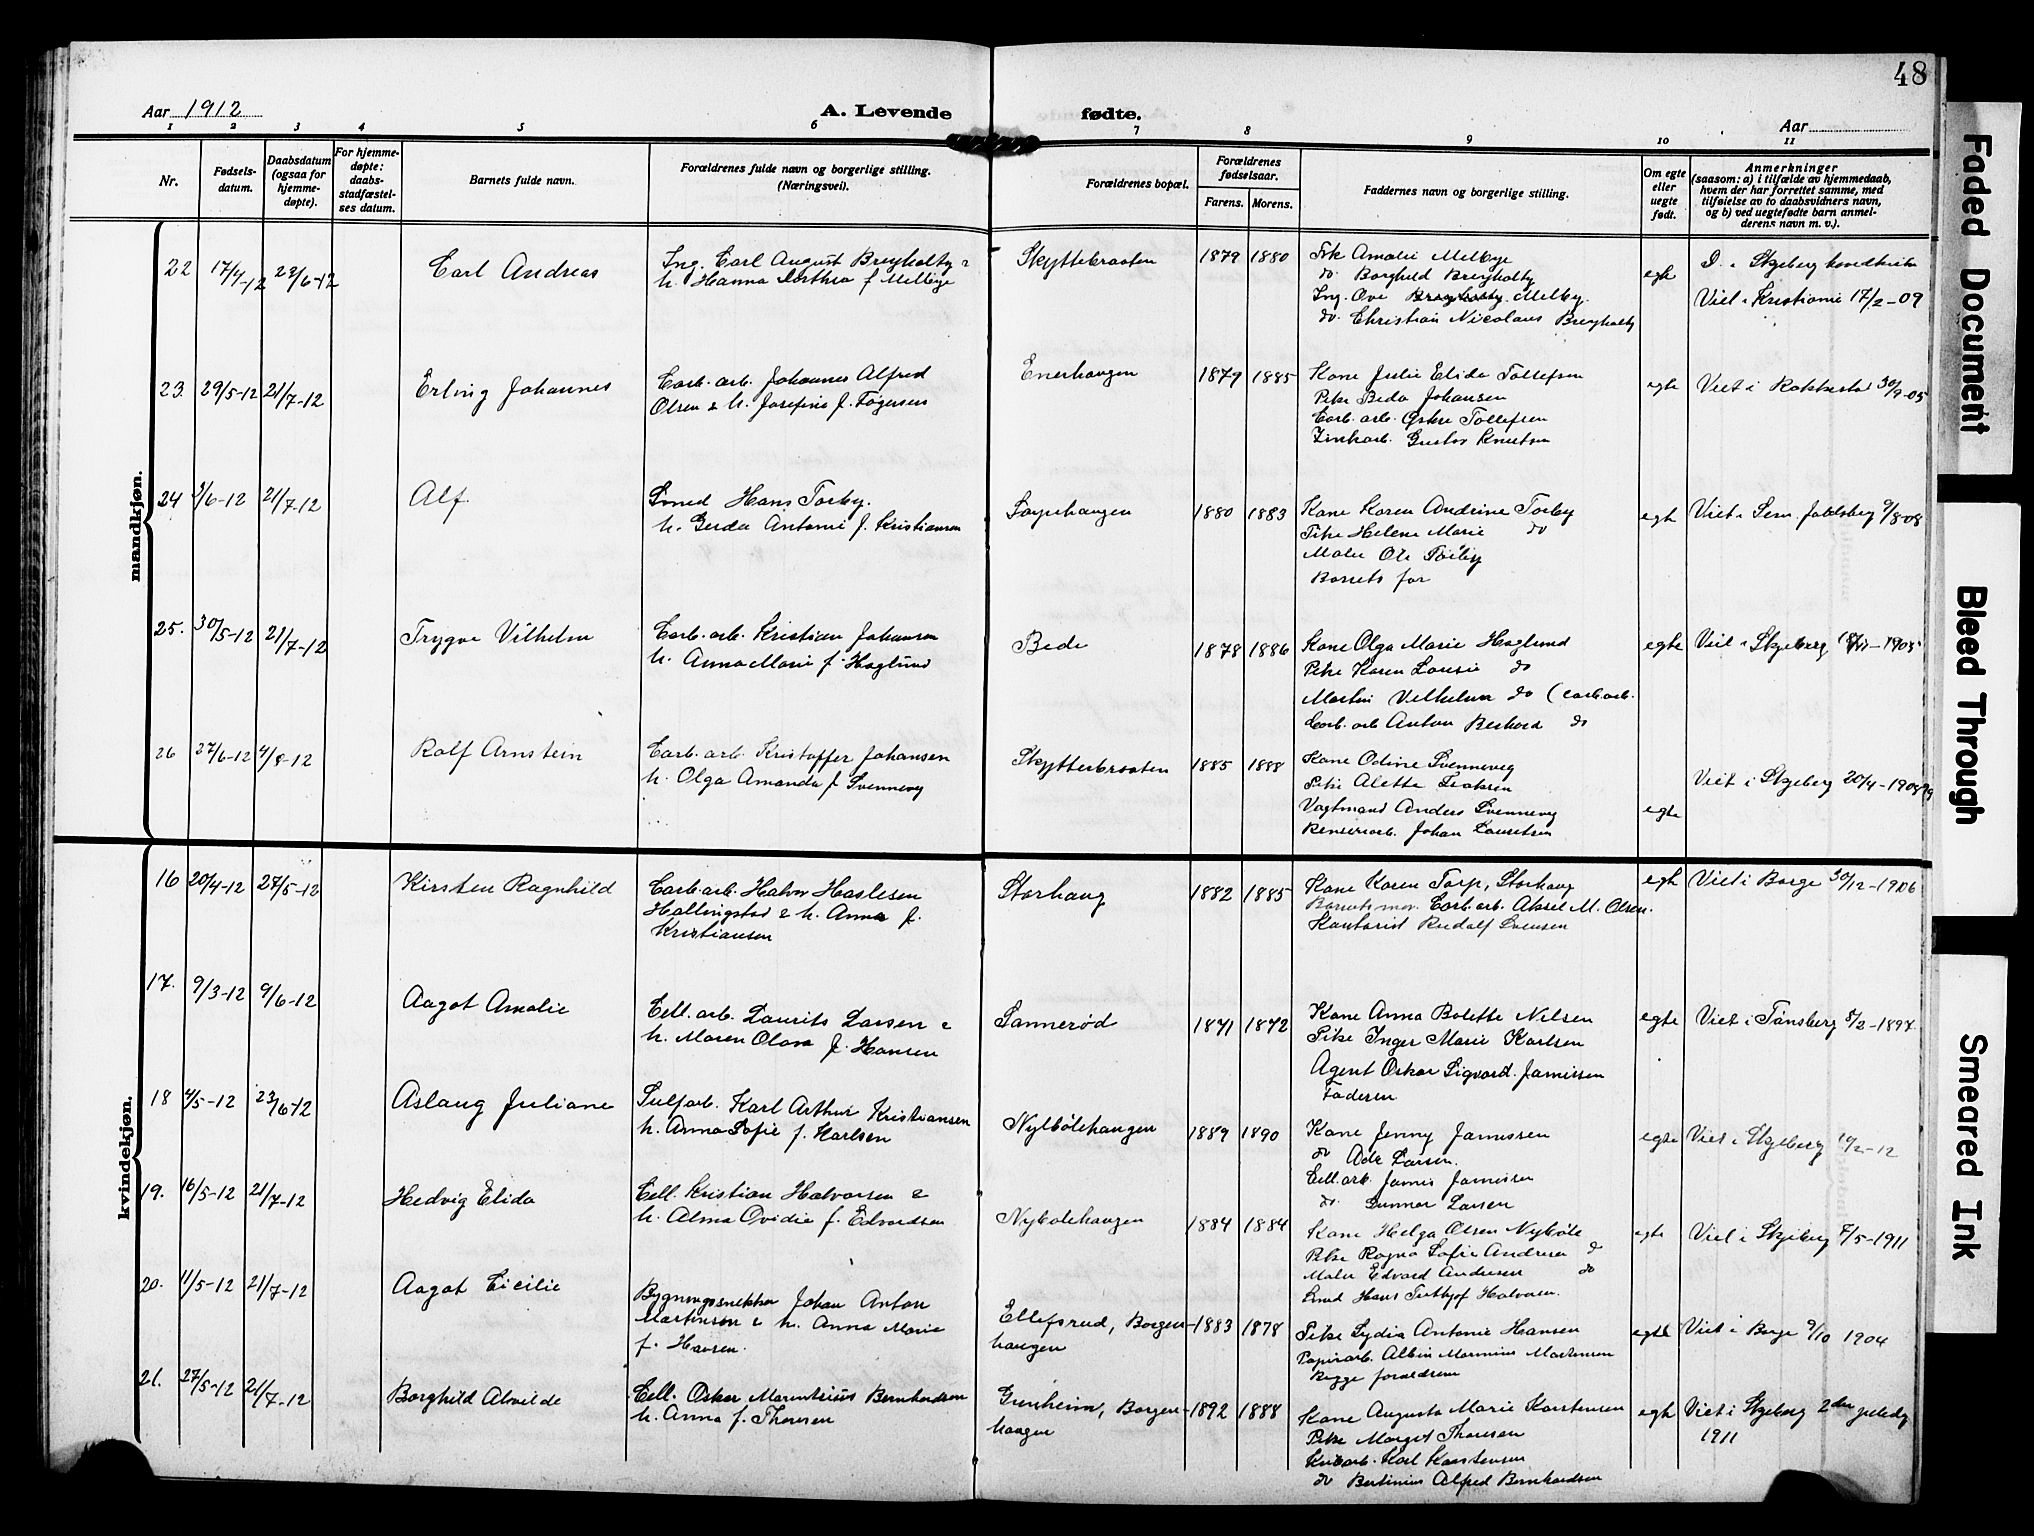 48
Aar 1912
A. Levende fødte.
Aar
1 2 3 4 5 6 7 8 9 10 11
Nr.
Fødsels-
datum.
Daabsdatum
(ogsaa for
hjemme-
døpte).
For hjemme-
døpte:
daabs-
stadfæstel-
ses datum.
Barnets fulde navn.
Forældrenes fulde navn og borgerlige stilling.
(Næringsvei).
Forældrenes bopæl.
Forældrenes
fødselsaar.
Farens. Morens.
Faddernes navn og borgerlige stilling.
Om egte
eller
uegte
født.
Anmerkninger
(saasom: a) i tilfælde av hjemmedaab,
hvem der har forrettet samme, med
tilføielse av to daabsvidners navn,
og b) ved uegtefødte barn anmel-
derens navn m. v.).
mandkjøn.
22 17/4-12 23/6-12
Carl Andreas
Ing. Carl August Breyholtz &
h. Hanna Dorthea f. Melbye
Skyttebraaten
1879 1880
Frk Amalie Melbye
do Borghild Breyholtz
Ing. Ove Melby.
do. Christian Nicolaus Breyholtz
egte
D. i Skjeberg
Viet i Kristiania 17/2-09
23 29/5-12 21/7-12
Erling Johannes
Carb. arb. Johannes Alfred
Olsen & h. Josefine f. Fogersen
Enerhaugen
1879 1885
Kone Julie Elida Tollefsen
Pike Beda Johansen
Carb. arb. Oskar Tollefsen
Zinkarb. Gustav Knutsen
egte
Viet i Rakkestad 30/9-05
24 3/6-12 21/7-12
Alf
Smed Hans Torby.
h. Gerda Antonie f. Kristiansen
Løpehaugen
1880 1883
Kone Karen Andrine Torby
Pike Helene Marie do
Maler Ole Torby
Barnets far
egte
Viet i Sem. Jarlsberg 9/8-08
25. 30/5-12 21/7-12
Trygve Vilhelm
Carb. arb. Kristian Johansen
h. Anna Marie f. Haglund
Bede
1878 1886
Kone Olga Marie Haglund
Pike Karen Lousie do
Martin Vilhelm do (carb. arb.
Carb. arb Anton Berhard do
egte
Viet i Skjeberg 1905
26 27/6-12 4/8-12
Rolf Arnstein
Carb. arb. Kristoffer Johansen
h. Olga Amanda f. Svennevig
Skytterbraaten
1885 1888
Kone Odine Svennevig
Pike Alette Isaksen
Vogtmand Anders Svennevig
Renseriarb. Johan Lauritsen
egte
Viet i Skjeberg 20/4-1909
kvindekjøn.
16 20/4-12 27/5-12
Kirsten Ragnhild
Carb. arb. Halvor Haslesen
Hallingstad & h. Anna f.
Kristiansen
Storhaug
1882 1885
Kone Karen Torp, Storhaug
Barnets mor. Carb. arb. Aksel M. Olsen.
Kontorist Rudolf Svensen
egte
Viet i Borge 30/12-1906
17. 9/3-12 9/6-12
Aagot Amalie
Cell. arb. Laurits Larsen &
h. Maren Olava f. Hansen
Sannerød
1871 1872
Kone Anna Bolette Nilsen
Pike Inger Marie Karlsen
Agent Oskar Sigvard Jamissen
Faderen
egte
Viet i Tønsberg 8/2-1897
18 4/5-12 23/6-12
Aslaug Juliane
Sulf arb. Karl Arthur Kristiansen
h. Anna Sofie f. Karlsen
Nybølehaugen
1889 1890
Kone Jenny Jamissen
do Ada Larsen.
Cell. arb. Jamis Jamissen
do. Gunnar Larsen
egte
Viet i Skjeberg 10/2-12
19. 16/5-12 21/7-12
Hedvig Elida
Cell. Kristian Halvorsen &
h. Alma Ovidie f. Edvardsen
Nybølehaugen
1884 1884
Kone Helga Olsen Nybøle
Pike Ragna Sofie Andresen do
Maler Edvard Andresen do
Smed Hans Fritjof Halvorsen.
egte
Viet i Skjeberg 7/5-1911
20. 11/5-12 21/7-12
Aagot Cicilie
Bygningssnekker Johan Anton
Martinsen & h. Anna Marie
f. Hansen.
Ellefsrud, Borgen-
haugen
1883 1878
Pike Lydia Antonie Hansen
Papirarb. Albin Marinius Martinsen
Begge forældrene
egte
Viet i Borge 9/10 1904
21. 27/5-12 21/7-12
Borghild Alvilde
Cell. Oskar Marentsius Bernhardsen
h. Anna f. Thoresen
Grenheim, Borgen-
haugen
1892 1888
Kone Augusta Marie Karstensen
Pike Margit Thoresen
Karl Karstensen
do Bertinius Alfred Bernhardsen
egte
Viet i Skjeberg 2den juledg
1911
Faded Document
Bleed Through
Smeared Ink